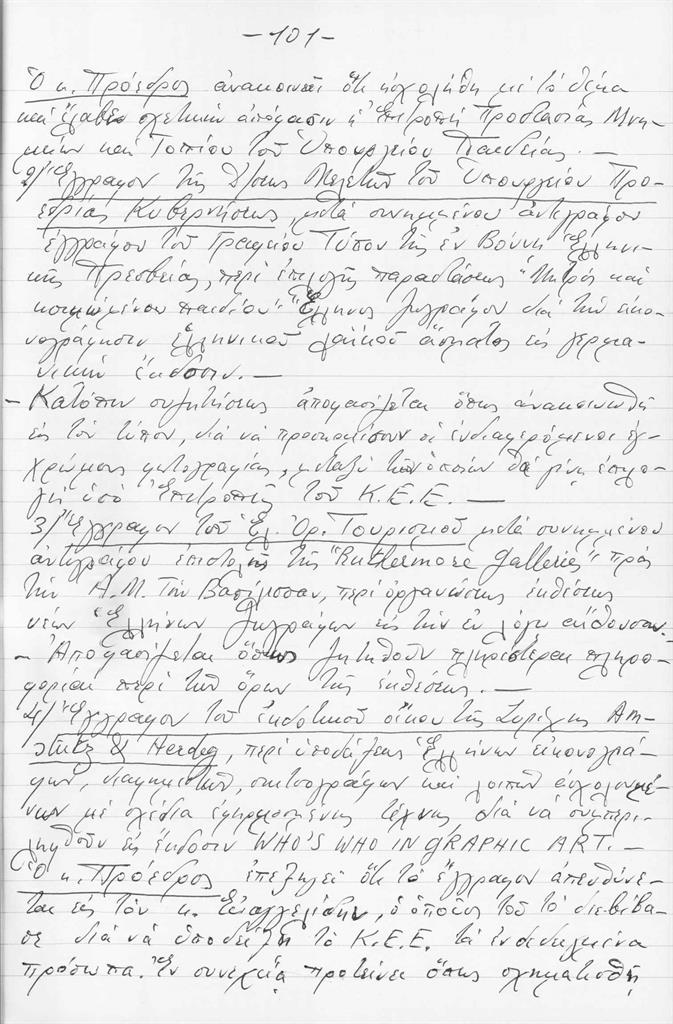 -101-
Ὁ κ. Πρόεδρος ἀνακοινεῖ ὅτι ἠσχολήθη μέ τό θέμα
καί ἔλαβεν σχετικήν ἀπόφασιν ἡ Ἐπιτροπή Προστασίας Μνη-
μείων καί Τοπίου τοῦ Ὑπουργείου Παιδείας. —
2/ Ἔγγραφον τῆς Δ/σεως Μελετῶν τοῦ Ὑπουργείου Προ-
εδρίας Κυβερνήσεως, μετά συνημμένου ἀντιγράφου
ἐγγράφου τοῦ Γραφείου Τύπου τῆς ἐν Βόννῃ Ἑλληνι-
κῆς Πρεσβείας, περί ἐπιλογῆς παραστάσεως "Μητρός καί
κοιμωμένου παιδίου" Ἕλληνος ζωγράφου διά τήν εἰκο-
νογράφησιν ἑλληνικοῦ λαϊκοῦ ᾄσματος εἰς γερμα-
νικήν ἔκδοσιν. —
- Κατόπιν συζητήσεως ἀποφασίζεται ὅπως ἀνακοινωθῇ
εἰς τόν τύπον, διά νά προσκομίσουν οἱ ἐνδιαφερόμενοι ἐγ-
χρώμους φωτογραφίας, μεταξύ τῶν ὁποίων θά γίνῃ ἐπιλο-
γή ὑπό Ἐπιτροπῆς τοῦ Κ.Ε.Ε. —
3/ Ἔγγραφον τοῦ Ἑλ. Ὀρ. Τουρισμοῦ μετά συνημμένου
ἀντιγράφου ἐπιστολῆς τῆς "Galleries" πρός
τήν Α.Μ. Τήν Βασίλισσαν, περί ὀργανώσεως ἐκθέσεως
νέων Ἑλλήνων ζωγράφων εἰς τήν ἐν λόγῳ αἴθουσαν. -
- Ἀποφασίζεται ὅπως ζητηθοῦν πληρέστεραι πληρο-
φορίαι περί τῶν ὅρων τῆς ἐκθέσεως. —
4/ Ἔγγραφον τοῦ ἐκδοτικοῦ οἴκου τῆς Ζυρίχης Am-
stutz & Herdeg, περί ὑποδείξεως Ἑλλήνων εἰκονογρά-
φων, διαφημιστῶν, σκιτσογράφων καί λοιπῶν ἀσχολουμέ-
νων μέ σχέδια ἐφηρμοσμένης τέχνης διά νά συμπερι-
ληφθοῦν εἰς ἔκδοσιν WHO'S WHO IN GRAPHIC ART. —
Ὁ κ. Πρόεδρος ἐπεξηγεῖ ὅτι τό ἔγγραφον ἀπευθύνε-
ται εἰς τόν κ. Εὐαγγελίδην, ὁ ὁποῖος τοῦ τό διεβίβα-
σε διά νά ὑποδείξῃ τό Κ.Ε.Ε. τά ἐνδεδειγμένα
πρόσωπα. Ἐν συνεχείᾳ προτείνει ὅπως σχηματισθῇ